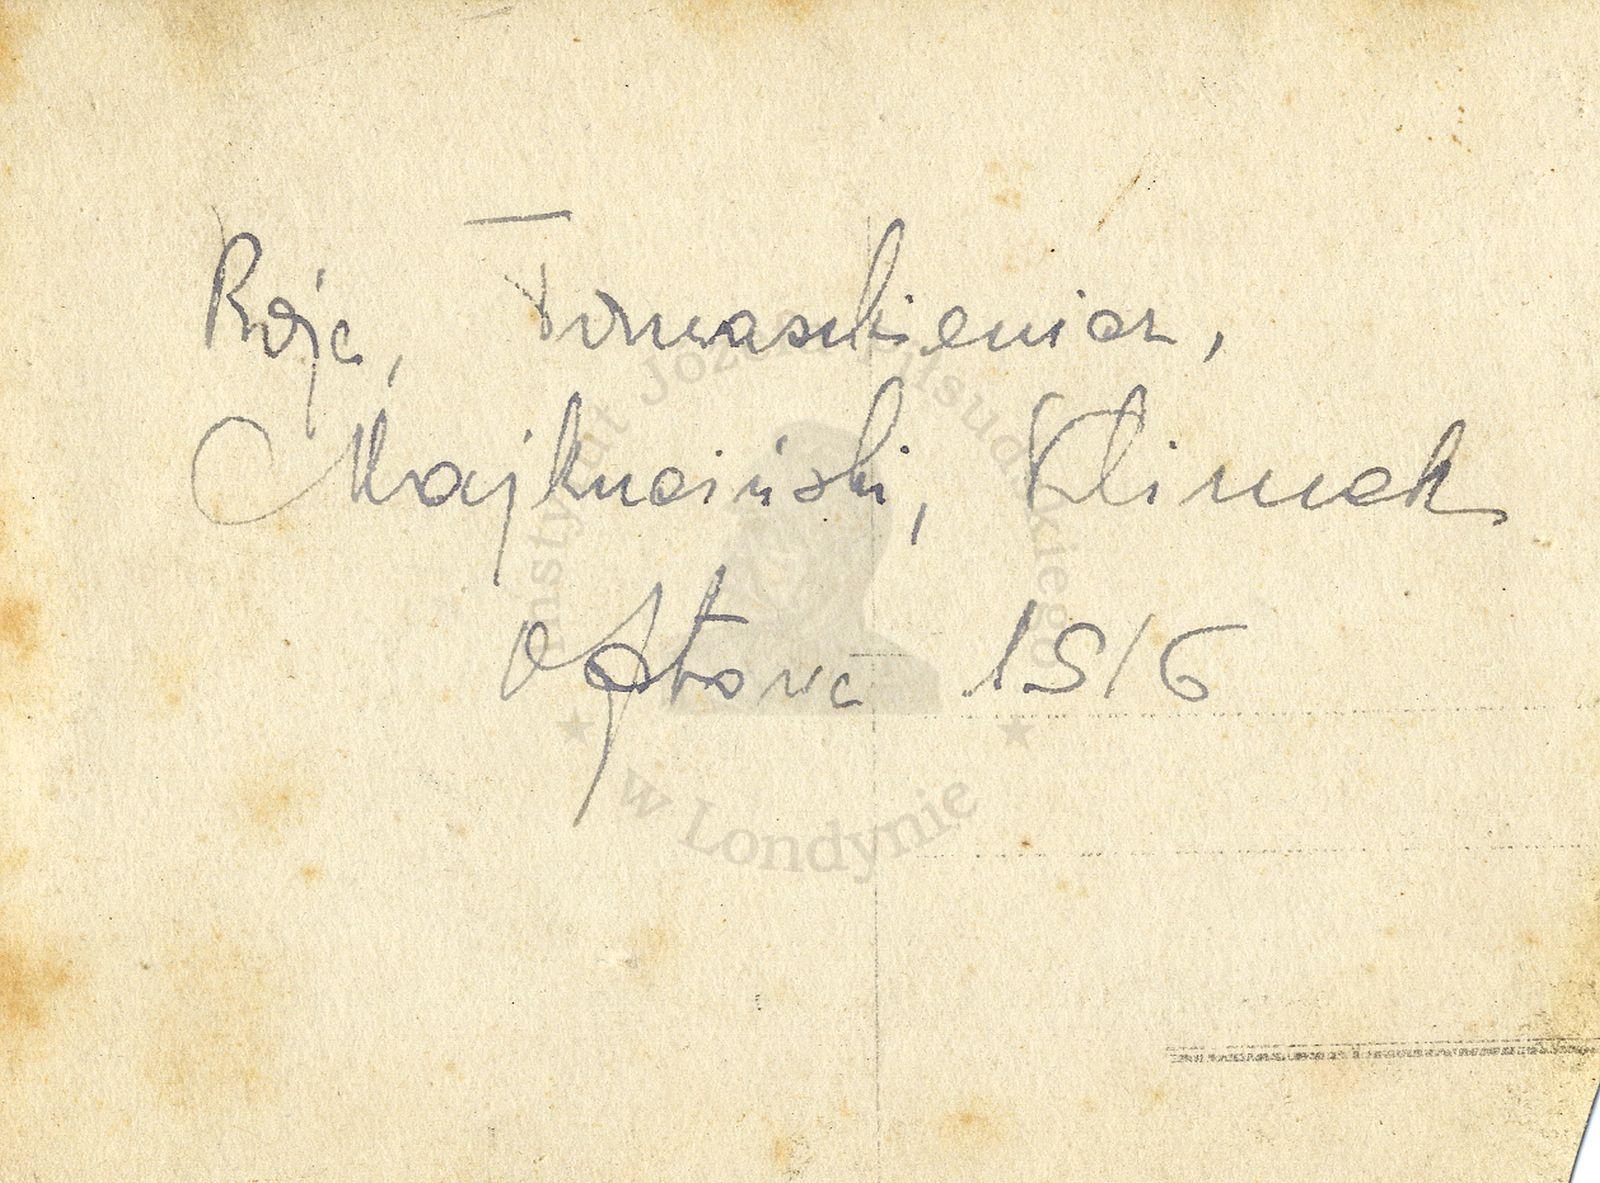 Roja, Tomaszkiewicz,
Majkuciński, Klimek
Optowa 1916
Instytut Józefa Piłsudskiego
★ ★
w Londynie